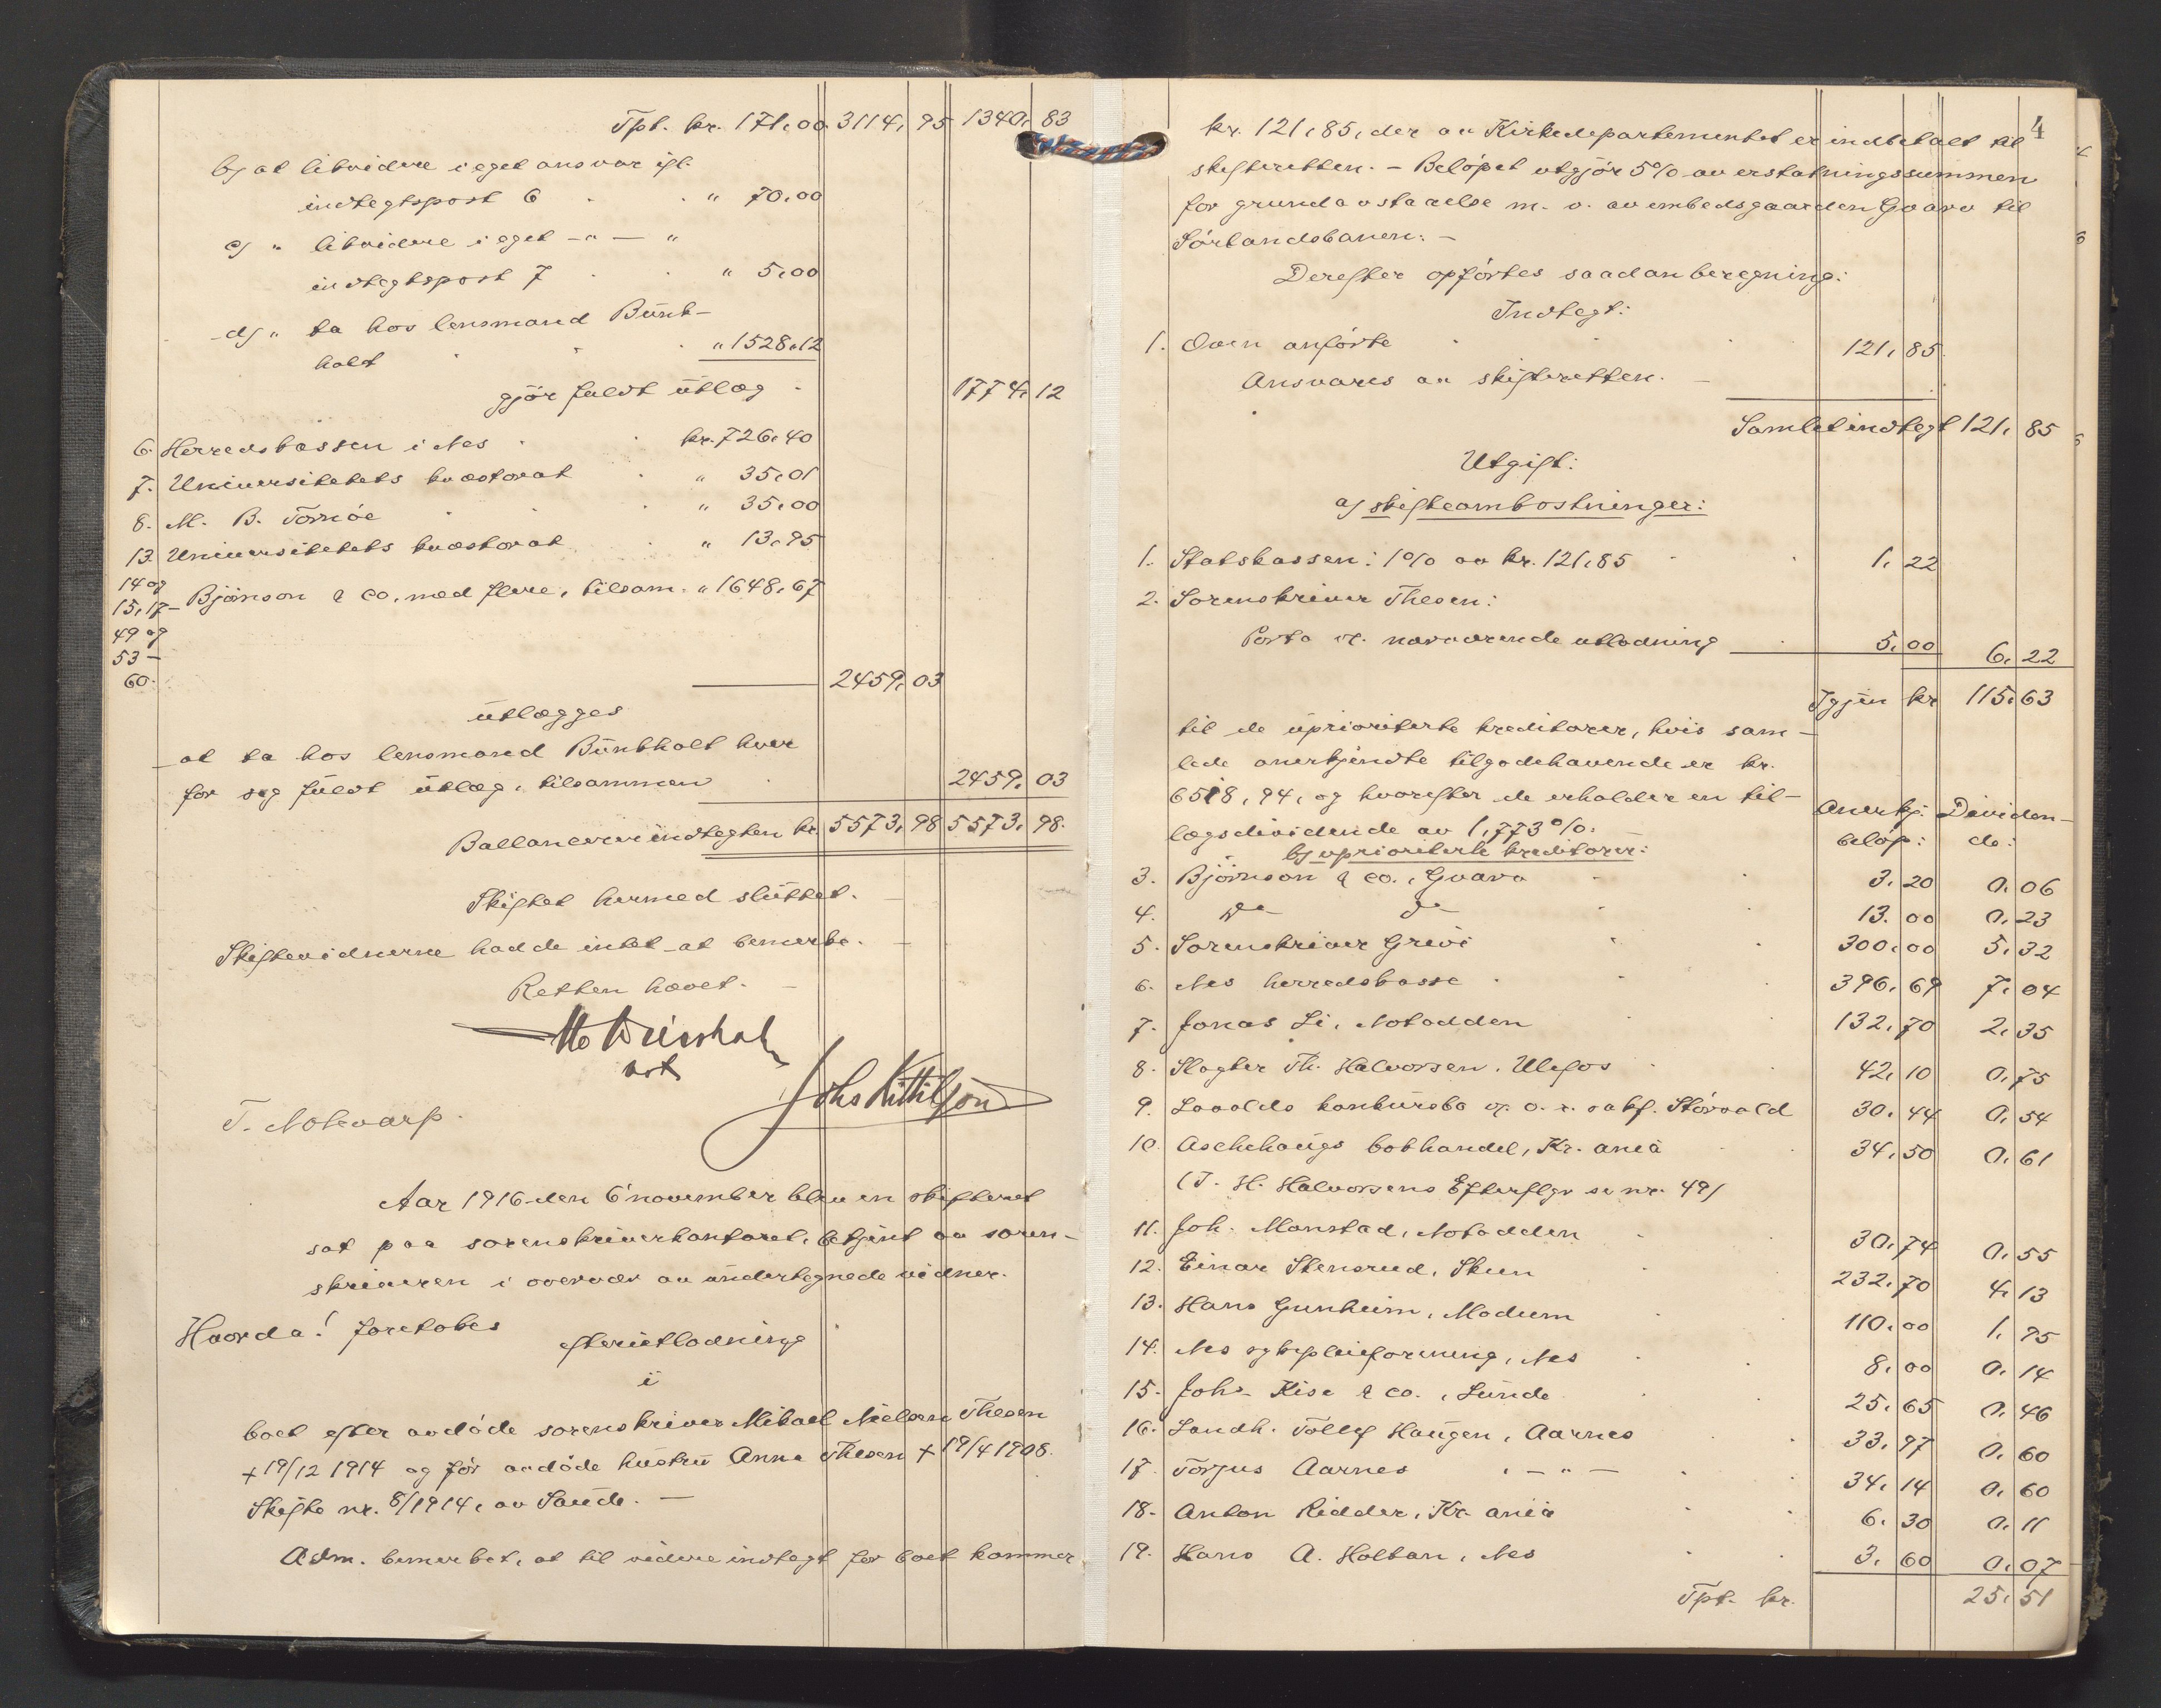 Tpt. kr. 171.00 3114.95 1340.83
b) at likvidere i eget ansvar ifl.
indtegtspost 6 . . " 70.00
c) " likvidere i eget -"- "
indtegtspost 7 . . " 5.00
d) " ta hos lensmand Bunk-
holt . . . " 1528.12
gjør fuldt utlæg . 1774.12
6. Herredskassen i Nes . . kr. 726.40
7. Universitetets kvæstorat . " 35.01
8. M. B. Tornöe . . " 35.00
13. Universitetets kvæstorat . " 13.95
14 og
15, 17- Björnson & co. med flere, tilsam. " 1648.67
49 og
53-
60.
2459.03
utlægges
at ta hos lensmand Bunkholt hver
for sig fuldt utlæg, tilsammen . 2459.03
Ballancerer indtegten kr. 5573.98 5573.98.
Skiftet hermed sluttet. -
Skiftevidnerne hadde intet at bemerke. -
Retten hævet. -
Johs Kittilson
T. Notevarp.
Aar 1916 den 6' november blev en skifteret
sat paa sorenskriverkontoret, betjent av soren-
skriveren i overvær av undertegnede vidner.
Hvorda! foretokes
efterutlodning
i
boet efter avdöde sorenskriver Mikael Nielsen Thesen
+ 19/12 1914 og før avdöde hustru Anna Thesen + 19/4 1908.
Skifte nr. 8/1914, av Saude. -
Adm. bemerket, at til videre indtegt for boet kommer
4
kr. 121.85, der av Kirkedepartementet er indbetalt til
skifteretten. - Belöpet utgjör 5% av erstatningssummen
for grundavstaaelse m. v. av embedsgaarden Gvarv til
Sörlandsbanen. -
Derefter opförtes saadan beregning:
Indtegt:
1. Oven anförte . . . 121.85
Ansvares av skifteretten. -
Samlet indtegt 121.85
Utgift:
a) skifteomkostninger:
1. Statskassen: 1% av kr. 121.85 . . 1.22
2. Sorenskriver Thesen:
Porto v. nærværende utlodning . 5.00 6.22
Igjen kr 115.63
til de uprioriterte kreditorer, hvis sam-
lede anerkjendte tilgodehavende er kr.
6518,94, og hvorefter de erholder en til-
lægsdividende av 1,773%:
Anerkj. Dividen-
belöp: de:
b) uprioriterte kreditorer:
3. Björnson & co., Gvarv . . 3.20 0.06
4. do do . . 13.00 0.23
5. Sorenskriver Grivi . . 300.00 5.32
6. Nes herredskasse . . 396.69 7.04
7. Jonas Li, Notodden . . 132.70 2.35
8. Slagter Th. Halvorsen, Ulefos . . 42.10 0.75
9. Lavolds konkursbo v. o. r. sakf. Störvold 30.44 0.54
10. Aschehougs bokhandel, Kr.ania . . 34.50 0.61
(T. H. Halvorsens Efterflgr se nr. 49)
11. Joh. Monstad, Notodden . . 30.74 0.55
12. Einar Stensrud, Skien . . 232.70 4.13
13. Hans Gunheim, Modum . . 110.00 1.95
14. Nes sykepleieforening, Nes . . 8.00 0.14
15. Johs Kise & co., Lunde . . 25.65 0.46
16. Landh. Tollef Haugen, Aarnes . . 33.97 0.60
17. Torjus Aarnes , - " - . . 34.14 0.60
18. Anton Ridder, Kr.ania . . 6.30 0.11
19. Hans A. Holtan, Nes . . 3.60 0.07
Tpt. kr. 25.51